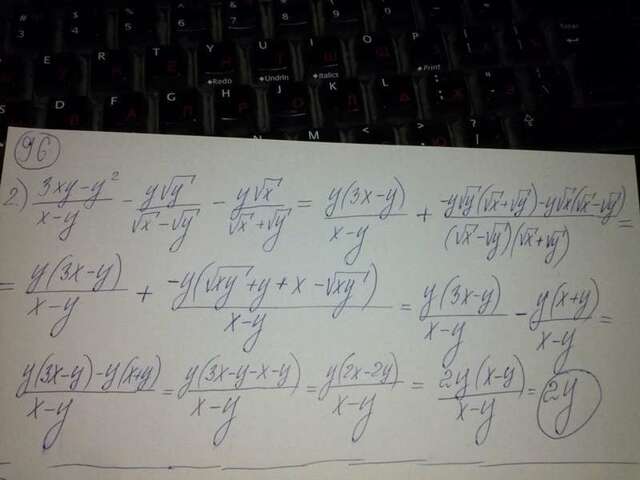 # 3 $ 4 % 5 ^ 6 & 7 * 8 ( 9 ) 0
E R T Y U I O P
Redo Undrln Italics Print
D F G H J K L
N M < >
96
2) (3xy-y²)/(x-y) - (y√y)/(√x-√y) - (y√x)/(√x+√y) = (y(3x-y))/(x-y) + (-y√y(√x+√y)-y√x(√x-√y))/((√x-√y)(√x+√y)) =
= (y(3x-y))/(x-y) + (-y(√xy+y+x-√xy))/(x-y) = (y(3x-y))/(x-y) - (y(x+y))/(x-y) =
(y(3x-y)-y(x+y))/(x-y) = (y(3x-y-x-y))/(x-y) = (y(2x-2y))/(x-y) = (2y(x-y))/(x-y) = 2y